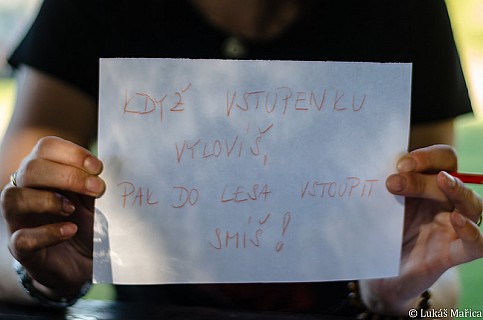 KDYŽ VSTUPENKU
VYLOVÍŠ,
PAK DO LESA VSTOUPIT
SMÍŠ!
© Lukáš Mařica